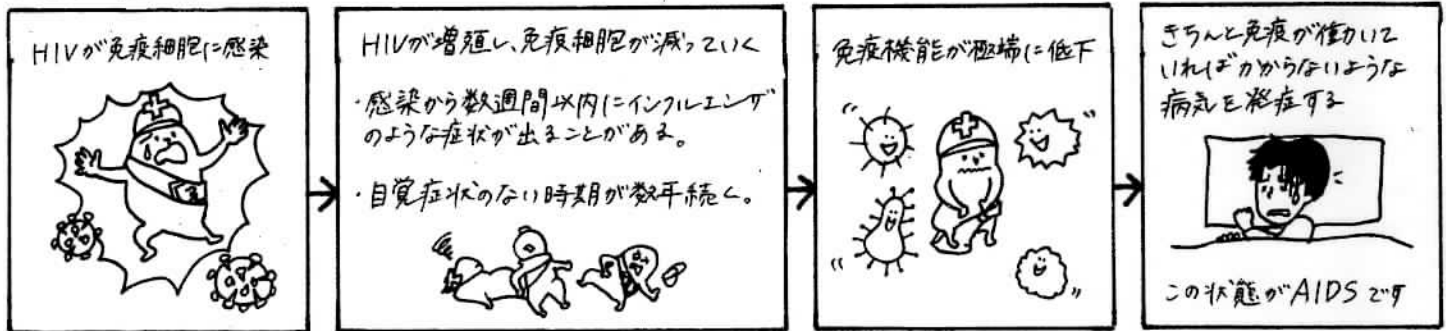 HIVが免疫細胞に感染
HIVが増殖し、免疫細胞が減っていく
・感染から数週間以内にインフルエンザ
のような症状が出ることがある。
・自覚症状のない時期が数年続く。
免疫機能が極端に低下
きちんと免疫が働いて
いればかからないような
病気を発症する
この状態がAIDSです